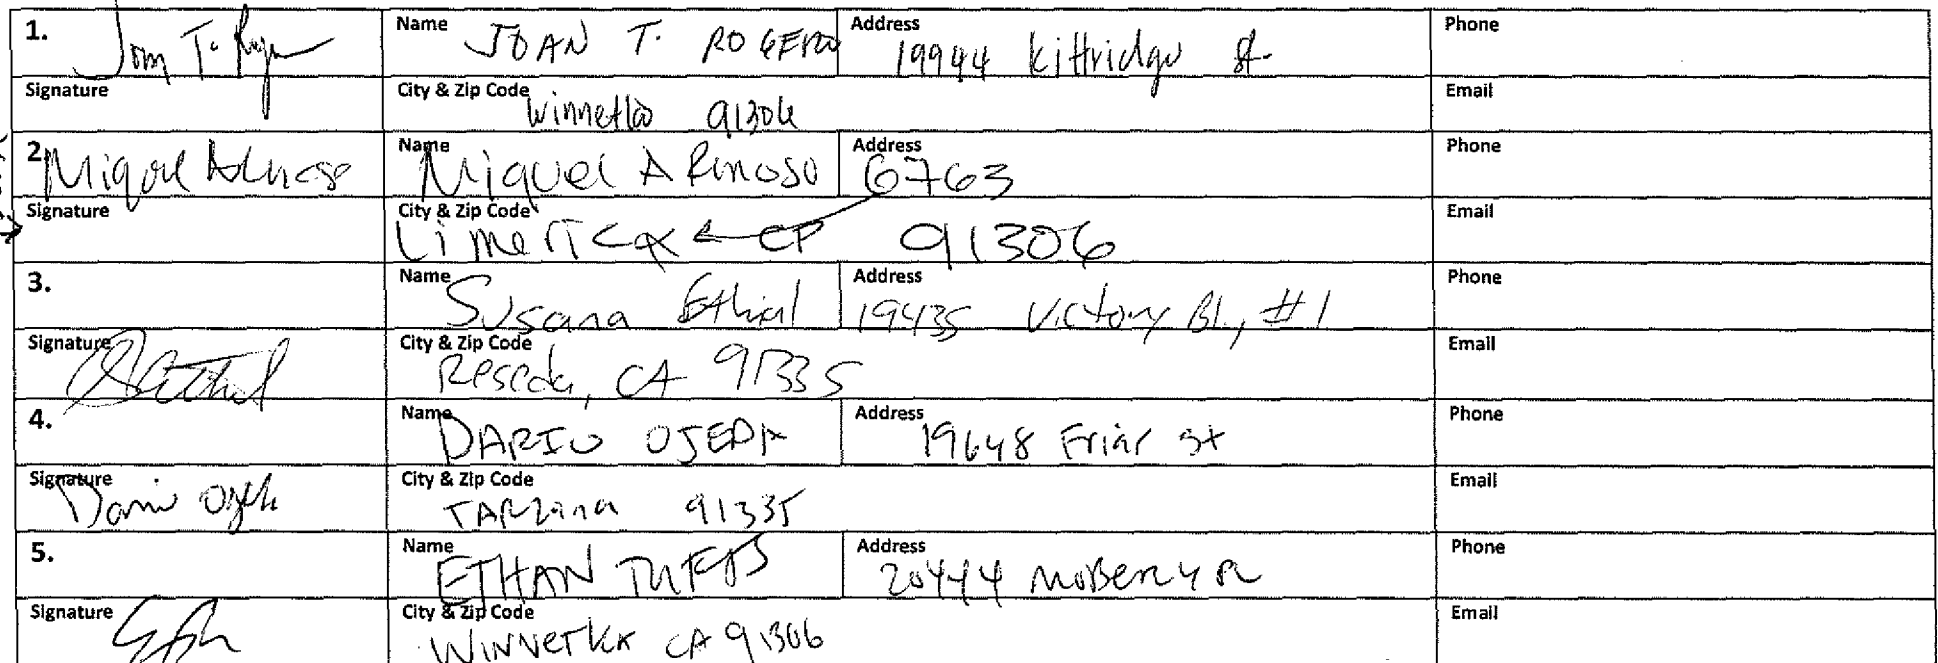 1. Name JOAN T. ROGERO Address 19944 Kittridge St Phone
Signature City & Zip Code Winnetka 91306 Email
2. Miguel Name Miguel A Rmoso Address 6763 Phone
Signature City & Zip Code CP 91306 Email
3. Name Susana Ethial Address 19435 Victory Bl., #1 Phone
Signature City & Zip Code Reseda, CA 91335 Email
4. Name DARIO OJEDA Address 19648 Friar St Phone
Signature Dario City & Zip Code TARZana 91335 Email
5. Name ETHAN TUFTS Address 20444 Phone
Signature City & Zip Code WINNETKA CA 91306 Email